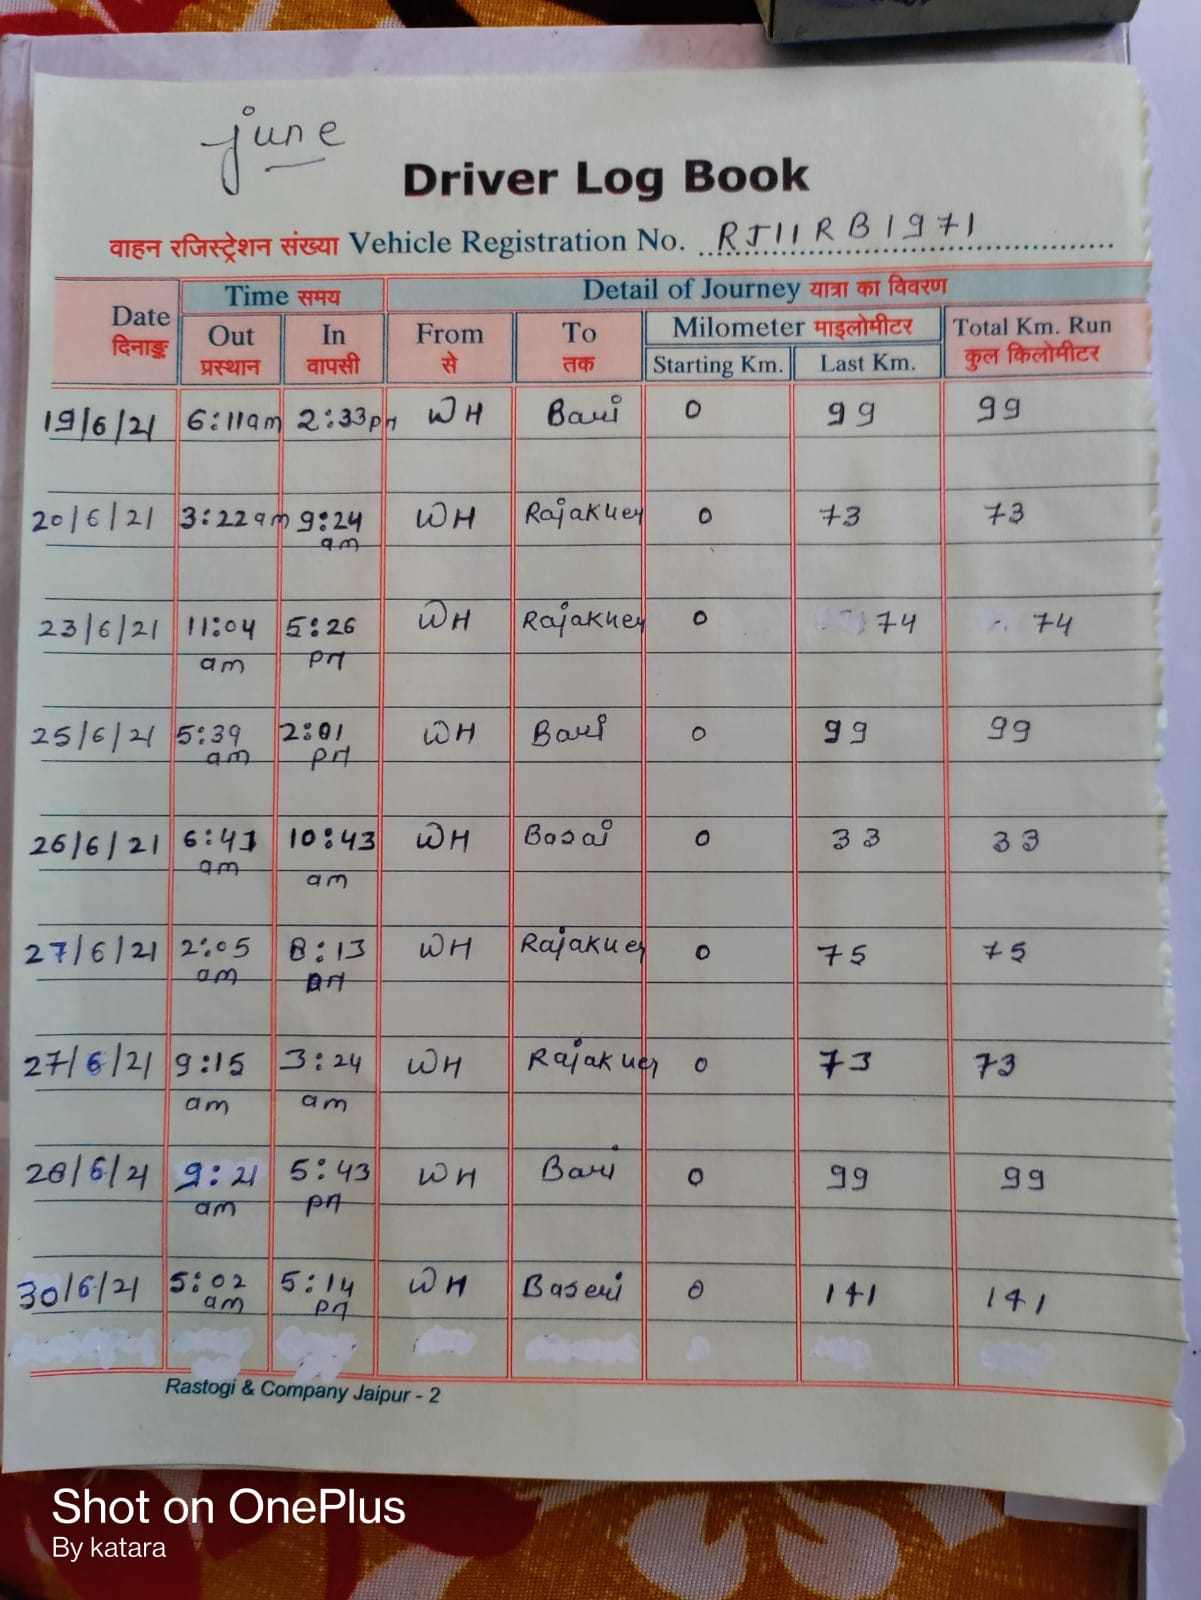 june
Driver Log Book
वाहन रजिस्ट्रेशन संख्या Vehicle Registration No. RJ11RB1971
Time समय Detail of Journey यात्रा का विवरण
Date Out In From To Milometer माइलोमीटर Total Km. Run
दिनाङ्क प्रस्थान वापसी से तक Starting Km. Last Km. कुल किलोमीटर
19/6/21 6:11am 2:33pm WH Bari 0 99 99
20/6/21 3:22am 9:24 am WH Rajakher 0 73 73
23/6/21 11:04 am 5:26 pm WH Rajakher 0 74 74
25/6/21 5:39 am 2:01 pm WH Bari 0 99 99
26/6/21 6:41 am 10:43 am WH Basai 0 33 33
27/6/21 2:05 am 8:13 WH Rajakher 0 75 75
27/6/21 9:15 am 3:24 am WH Rajakher 0 73 73
28/6/21 9:21 am 5:43 pm WH Bari 0 99 99
30/6/21 5:02 am 5:14 pm WH Baseri 0 141 141
Rastogi & Company Jaipur - 2
Shot on OnePlus
By katara